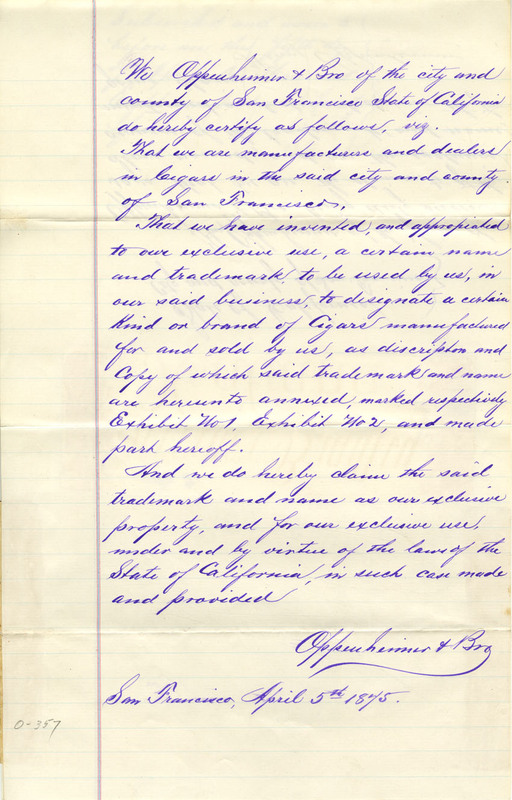 We Oppenheimer & Bro of the city and
county of San Francisco State of California
do hereby certify as follows, viz.
That we are manufacturers and dealers
in Cigars in the said city and county
of San Francisco,
That we have invented, and appropiated
to owe exclusive use, a certain name
and trademark, to be used by us, in
our said business, to designate a certain
Kind or brand of Cigars manufactured
for and sold by us, as discription and
Copy of which said trademark and name
are hereunto annexed, marked respectively
Exhibit No 1, Exhibit No 2, and made
part hereoff.
And we do hereby claim the said
trademark and name as our exclusive
property, and for our exclusive use,
under and by virtue of the laws of the
State of California, in such case made
and provided
Oppenheimer & Bro
San Francisco, April 5th 1875.
0-357